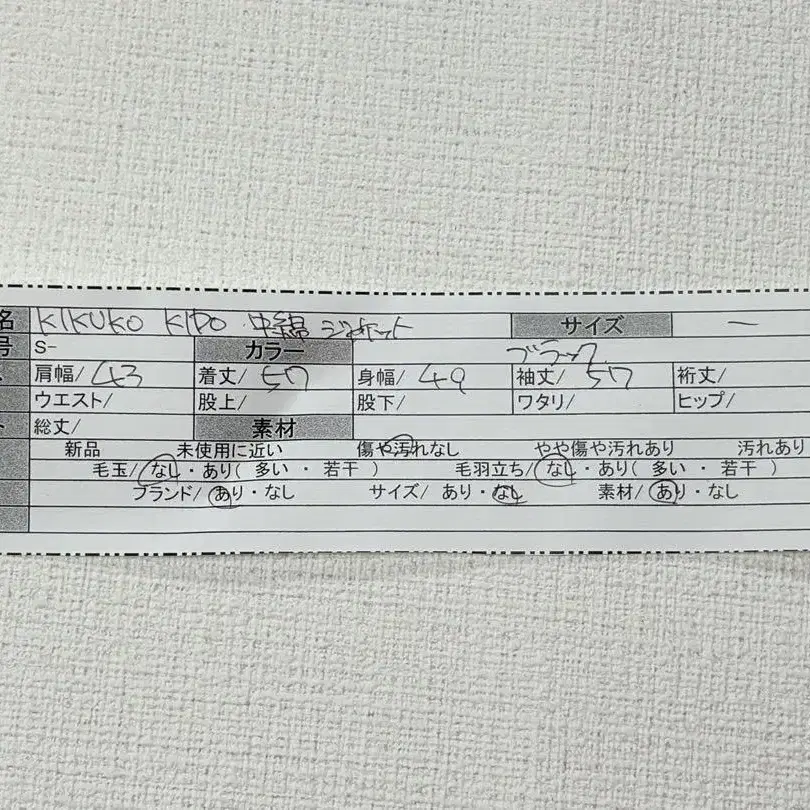 名 KIKUKO KIDO 中綿ジャケット サイズ ー
号 S- カラー ブラック
肩幅/ 43 着丈/ 57 身幅/ 49 袖丈/ 57 裄丈/
ウエスト/ 股上/ 股下/ ワタリ/ ヒップ/
総丈/ 素材
新品 未使用に近い 傷や汚れなし やや傷や汚れあり 汚れあり
毛玉/ なし・あり( 多い ・ 若干 ) 毛羽立ち/ なし・あり( 多い ・ 若干 )
ブランド/ あり・なし サイズ/ あり・なし 素材/ あり・なし